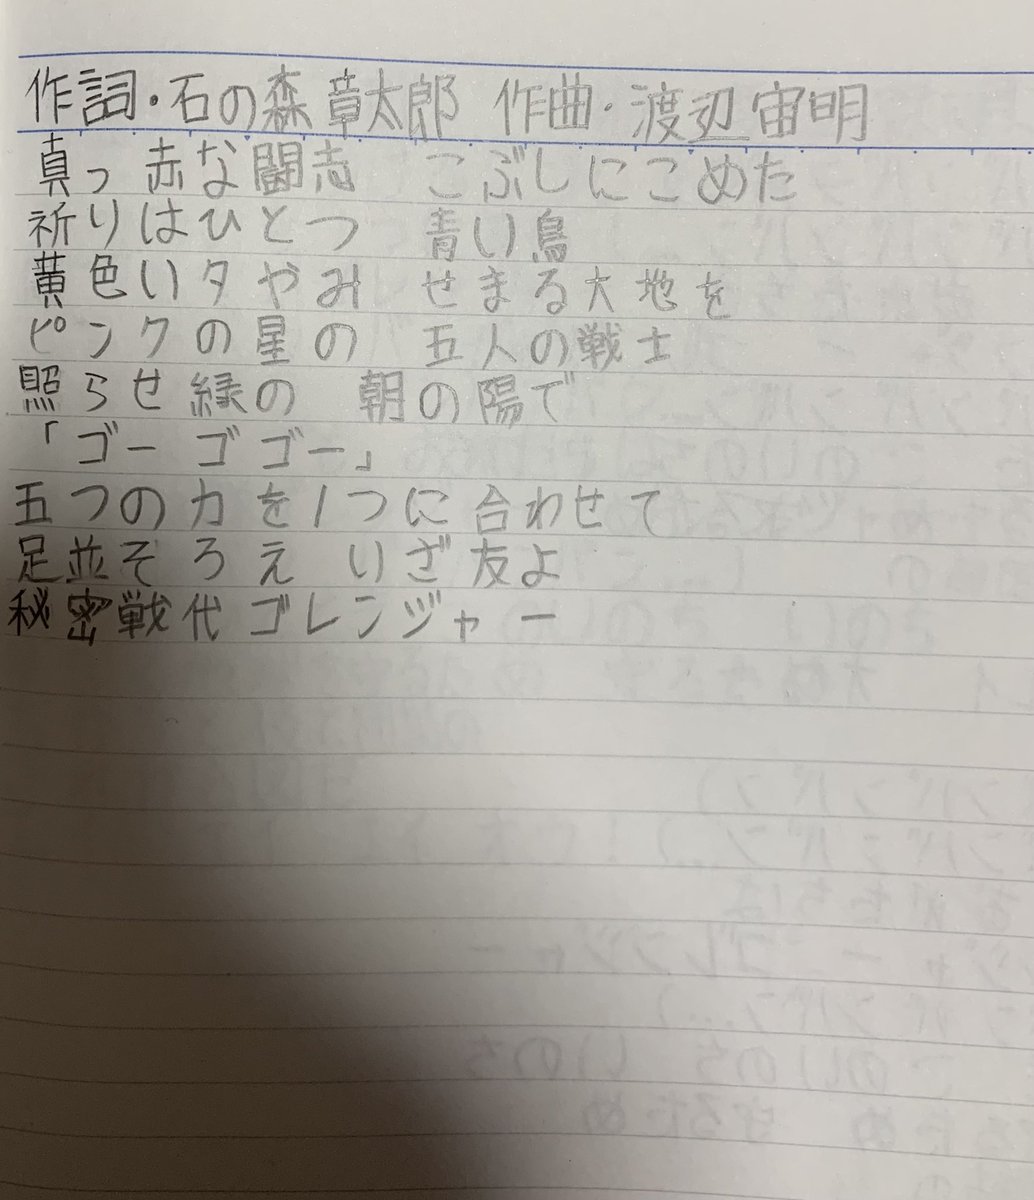 作詞・石の森章太郎 作曲・渡辺宙明
真っ赤な闘志 こぶしにこめた
祈りはひとつ 青い鳥
黄色い夕やみ せまる大地を
ピンクの星の 五人の戦士
照らせ緑の 朝の陽で
「ゴー ゴゴー」
五つの力を1つに合わせて
足並そろえ いざ友よ
秘密戦代ゴレンジャー